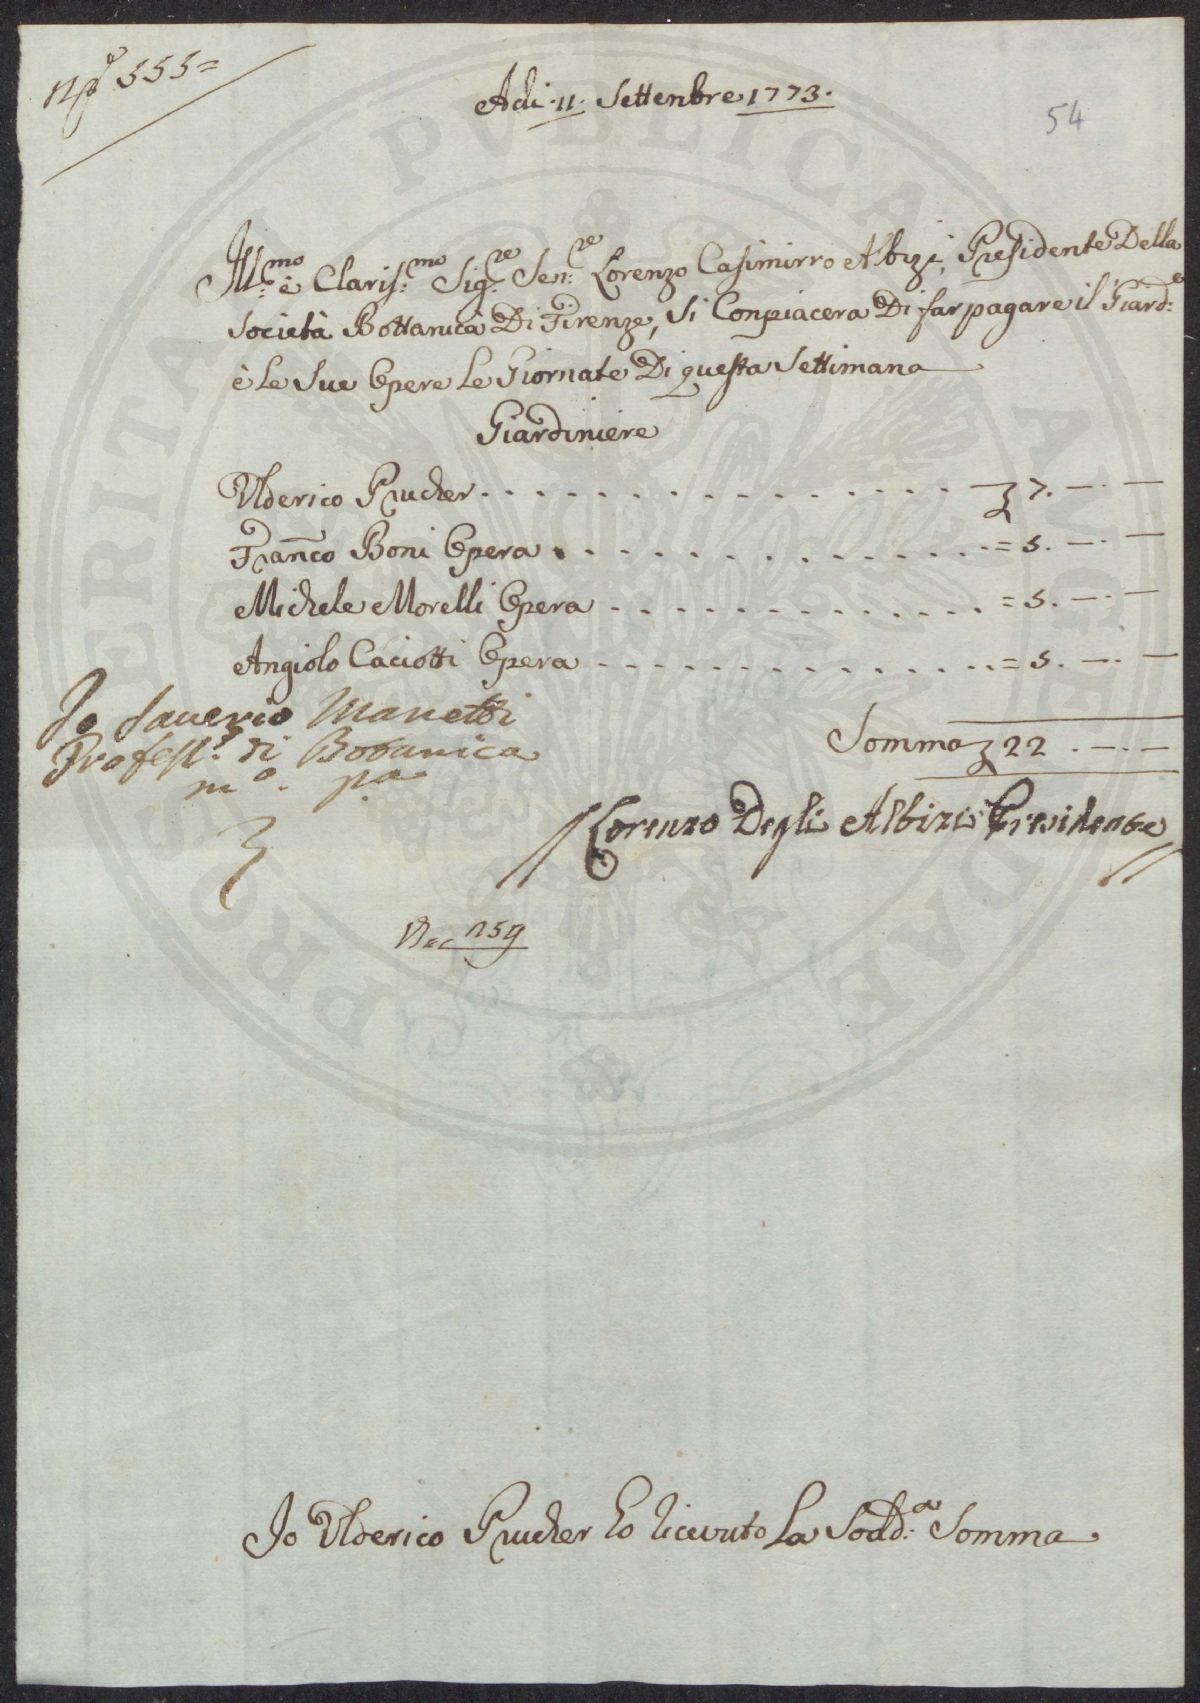 N.º 555=
Adi 11. Settenbre 1773.
54
Ill:mo è Claris:mo Sig:re Sen:re Lorenzo Casimirro Albizi, Presidente Della
Società Bottanica Di Firenze, Si Conpiacera Di far pagare il Giard:e
è le Sue Opere le Giornate Di questa Settimana
Giardiniere
Ulderico Prucher . . . . . . . . . . . . . . . . £ 7. —. —
Franco Boni Opera . . . . . . . . . . . . . = 5. —. —
Michele Morelli Opera . . . . . . . . . . . . = 5. —. —
Angiolo Caciotti Opera - - - - - - - - - - - - = 5. —. —
Io Saverio Manetti
Profess.e di Botanica
mo. pa
Somma £ 22 . —. —
Lorenzo Degli Albizi Presidente
159
Io Ulderico Prucher ho ricevuto la Sodd:a Somma
PRO MERITATI PVBLICA AVGE OVAE